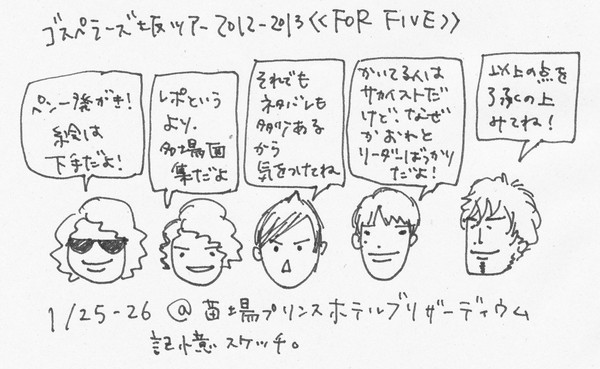 ゴスペラーズ坂ツアー2012-2013《FOR FIVE》
ペン一発がき!
絵は
下手だよ!
レポという
より、
名場面
集だよ
それでも
ネタバレも
多少ある
から
気をつけてね
かいてる人は
サカイストだ
けど、なぜ
かおわと
リーダーばっかり
だよ!
以上の点を
了承の上
みてね!
1/25-26 @苗場プリンスホテルブリザーディウム
記憶スケッチ。